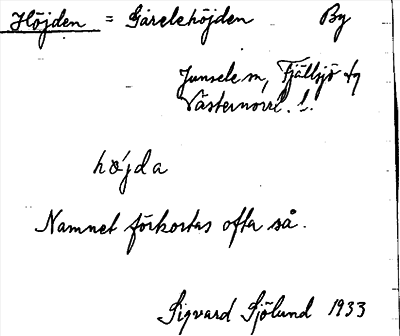 Höjden = Gårelehöjden By
Junsele sn, Fjällsjö tg
Västernorrl. l.
höjda
Namnet förkortas ofta så.
Sigvard Sjölund 1933